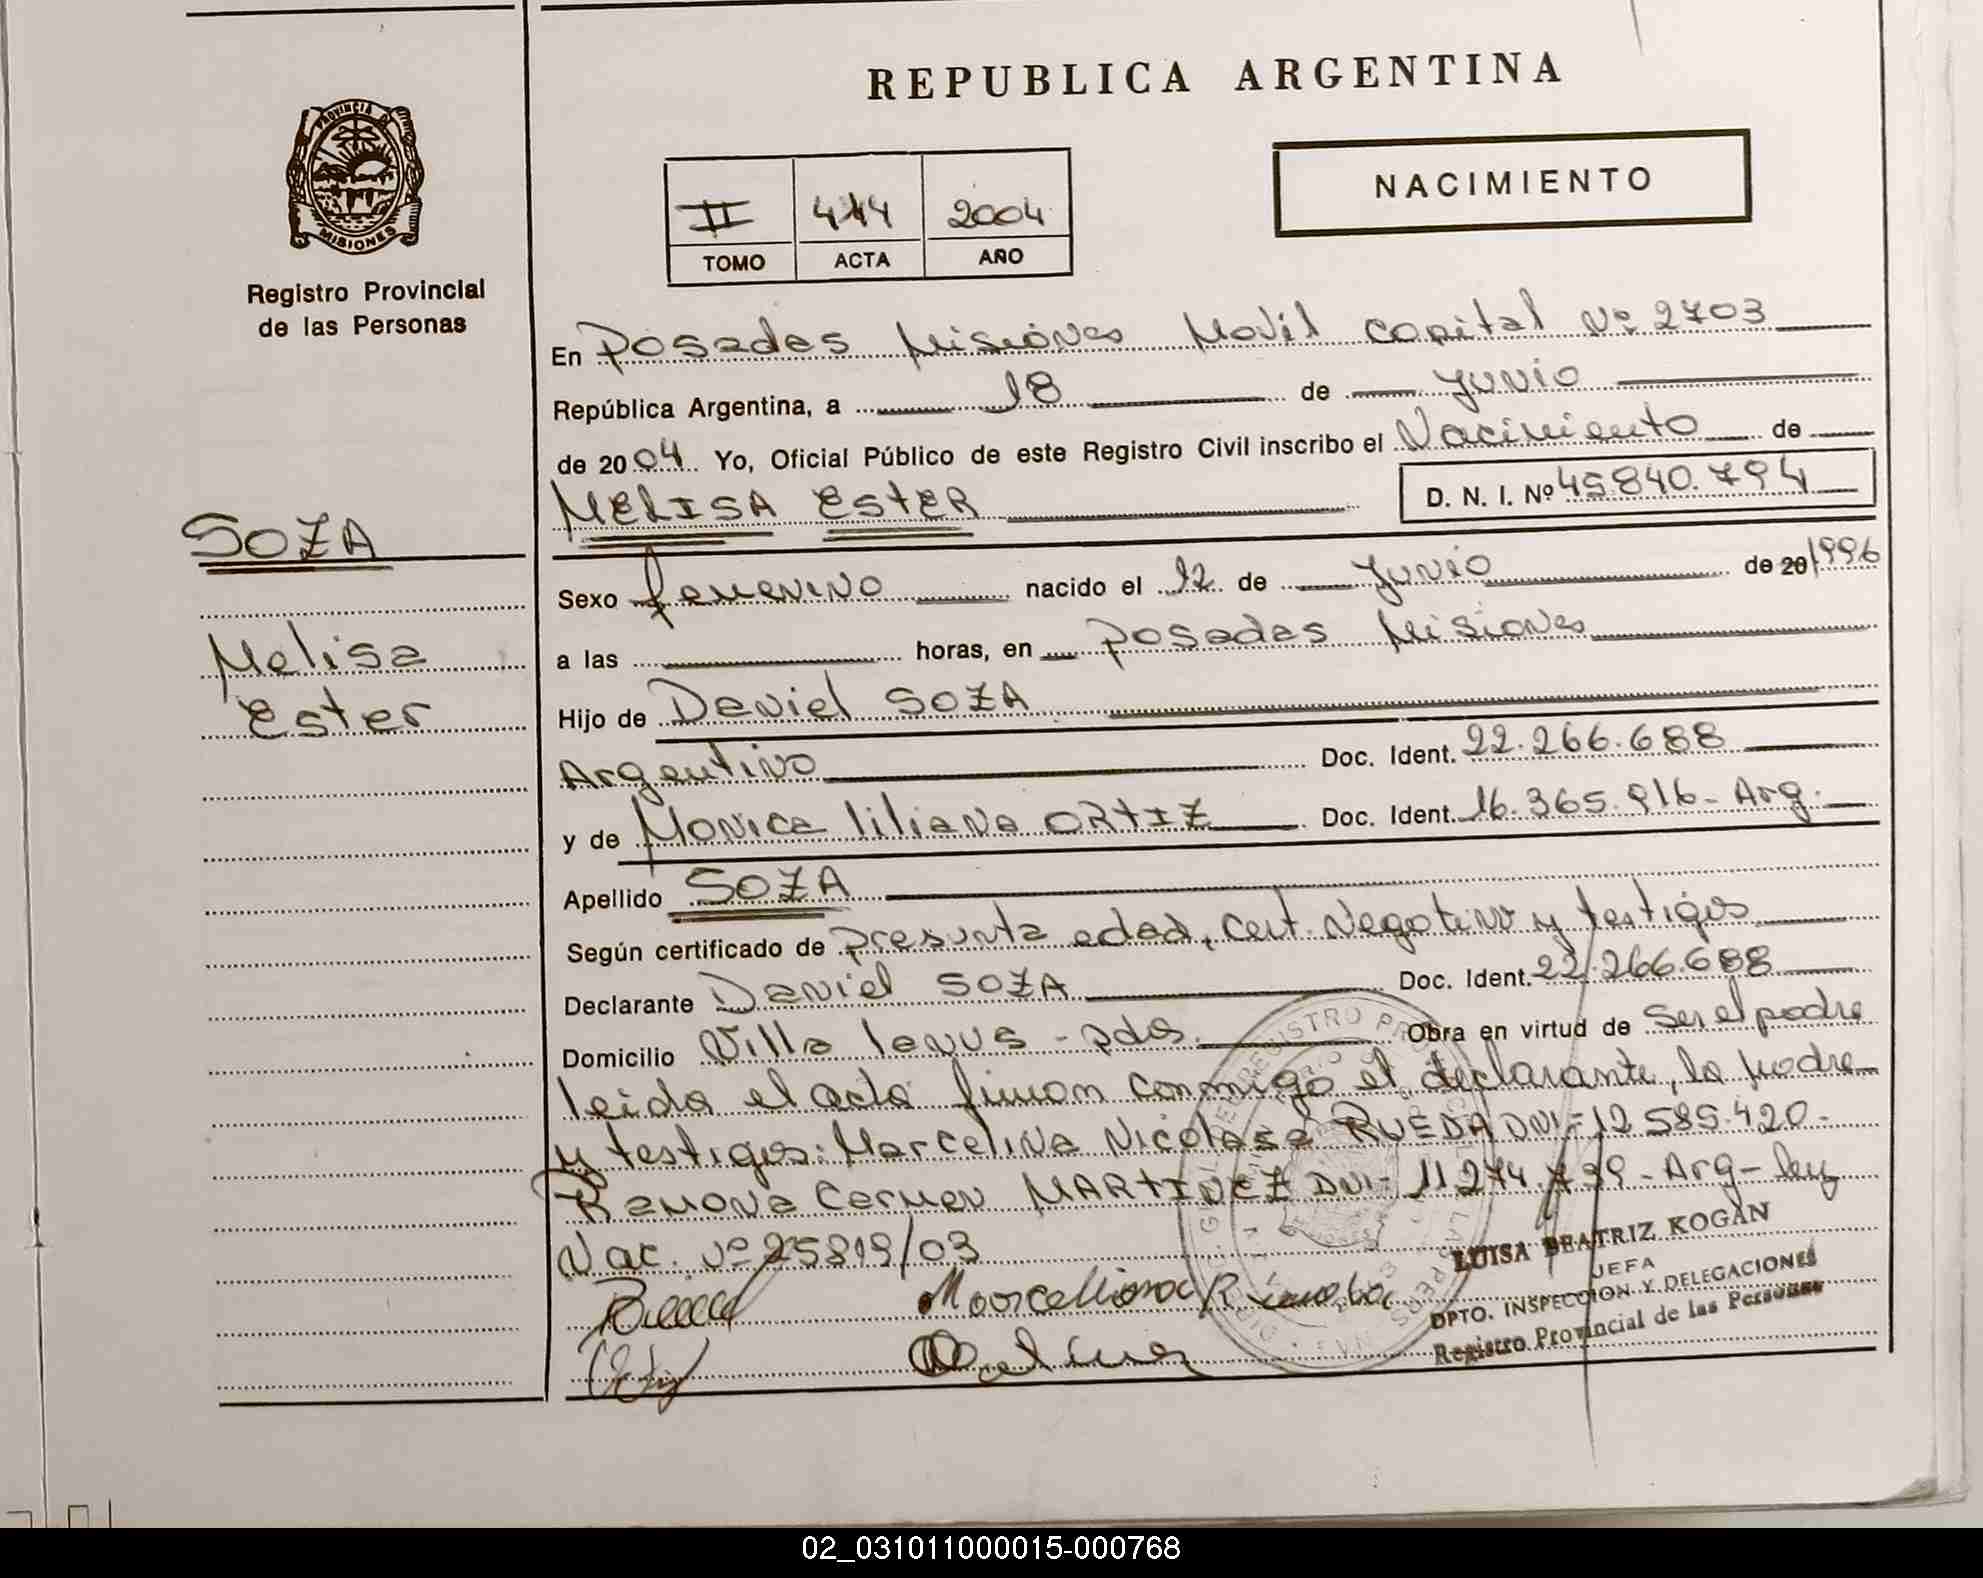 REPUBLICA ARGENTINA
PROVINCIA DE
MISIONES
Registro Provincial
de las Personas
II 2004
TOMO ACTA AÑO
NACIMIENTO
En Posadas Misiones Movil Capital Nº 2703
República Argentina, a 18 de Junio
de 2004 Yo, Oficial Público de este Registro Civil inscribo el Nacimiento de
MELISA ESTER D. N. I. Nº 45.840.794
SOZA
Melisa
Ester
Sexo femenino nacido el 12 de Junio de 20 1996
a las horas, en Posadas Misiones
Hijo de Daniel SOZA
Argentino Doc. Ident. 22.266.688
y de Monica liliana ORTIZ Doc. Ident. 16.365.916- Arg.
Apellido SOZA
Según certificado de presunta edad, Cert. Negativo y testigos
Declarante Daniel SOZA Doc. Ident. 22.266.688
Domicilio Villa lanus - pdas. Obra en virtud de Ser el padre
leida el acta firman conmigo el declarante, la madre
y testigos: Marcelina Nicolasa RUEDA DNI= 12.585.420-
Ramona Carmen MARTINEZ DNI- 11.274.739- Arg- ley
Nac. Nº 25819/03
LUISA BEATRIZ KOGAN
JEFA
DPTO. INSPECCION Y DELEGACIONES
Registro Provincial de las Personas
02_031011000015-000768